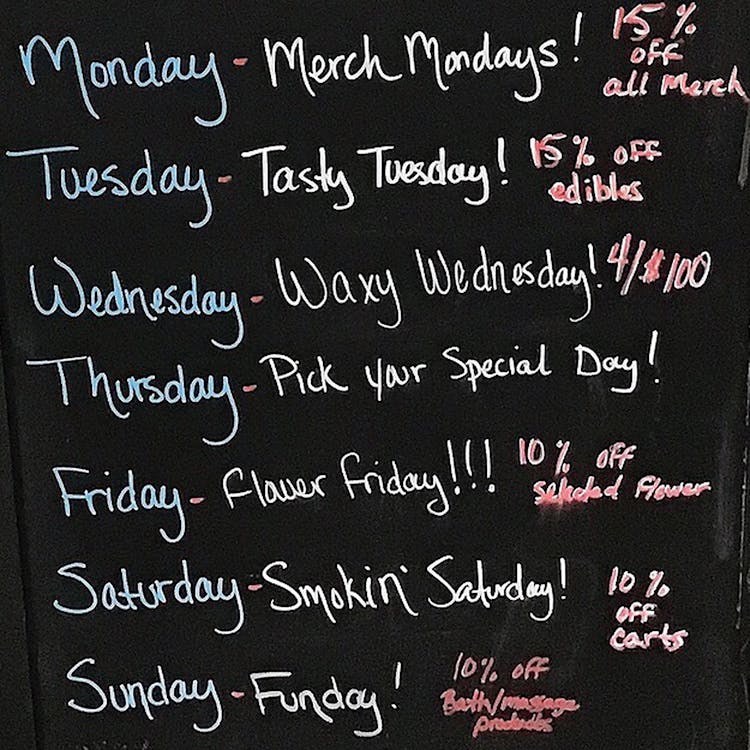 Monday - Merch Mondays! 15% off all Merch
Tuesday - Tasty Tuesday! 15% off edibles
Wednesday - Waxy Wednesday! 4/$100
Thursday - Pick your Special Day!
Friday - Flower Friday!!! 10% off selected Flower
Saturday - Smokin' Saturday! 10% off carts
Sunday - Funday! 10% off Bath/massage products